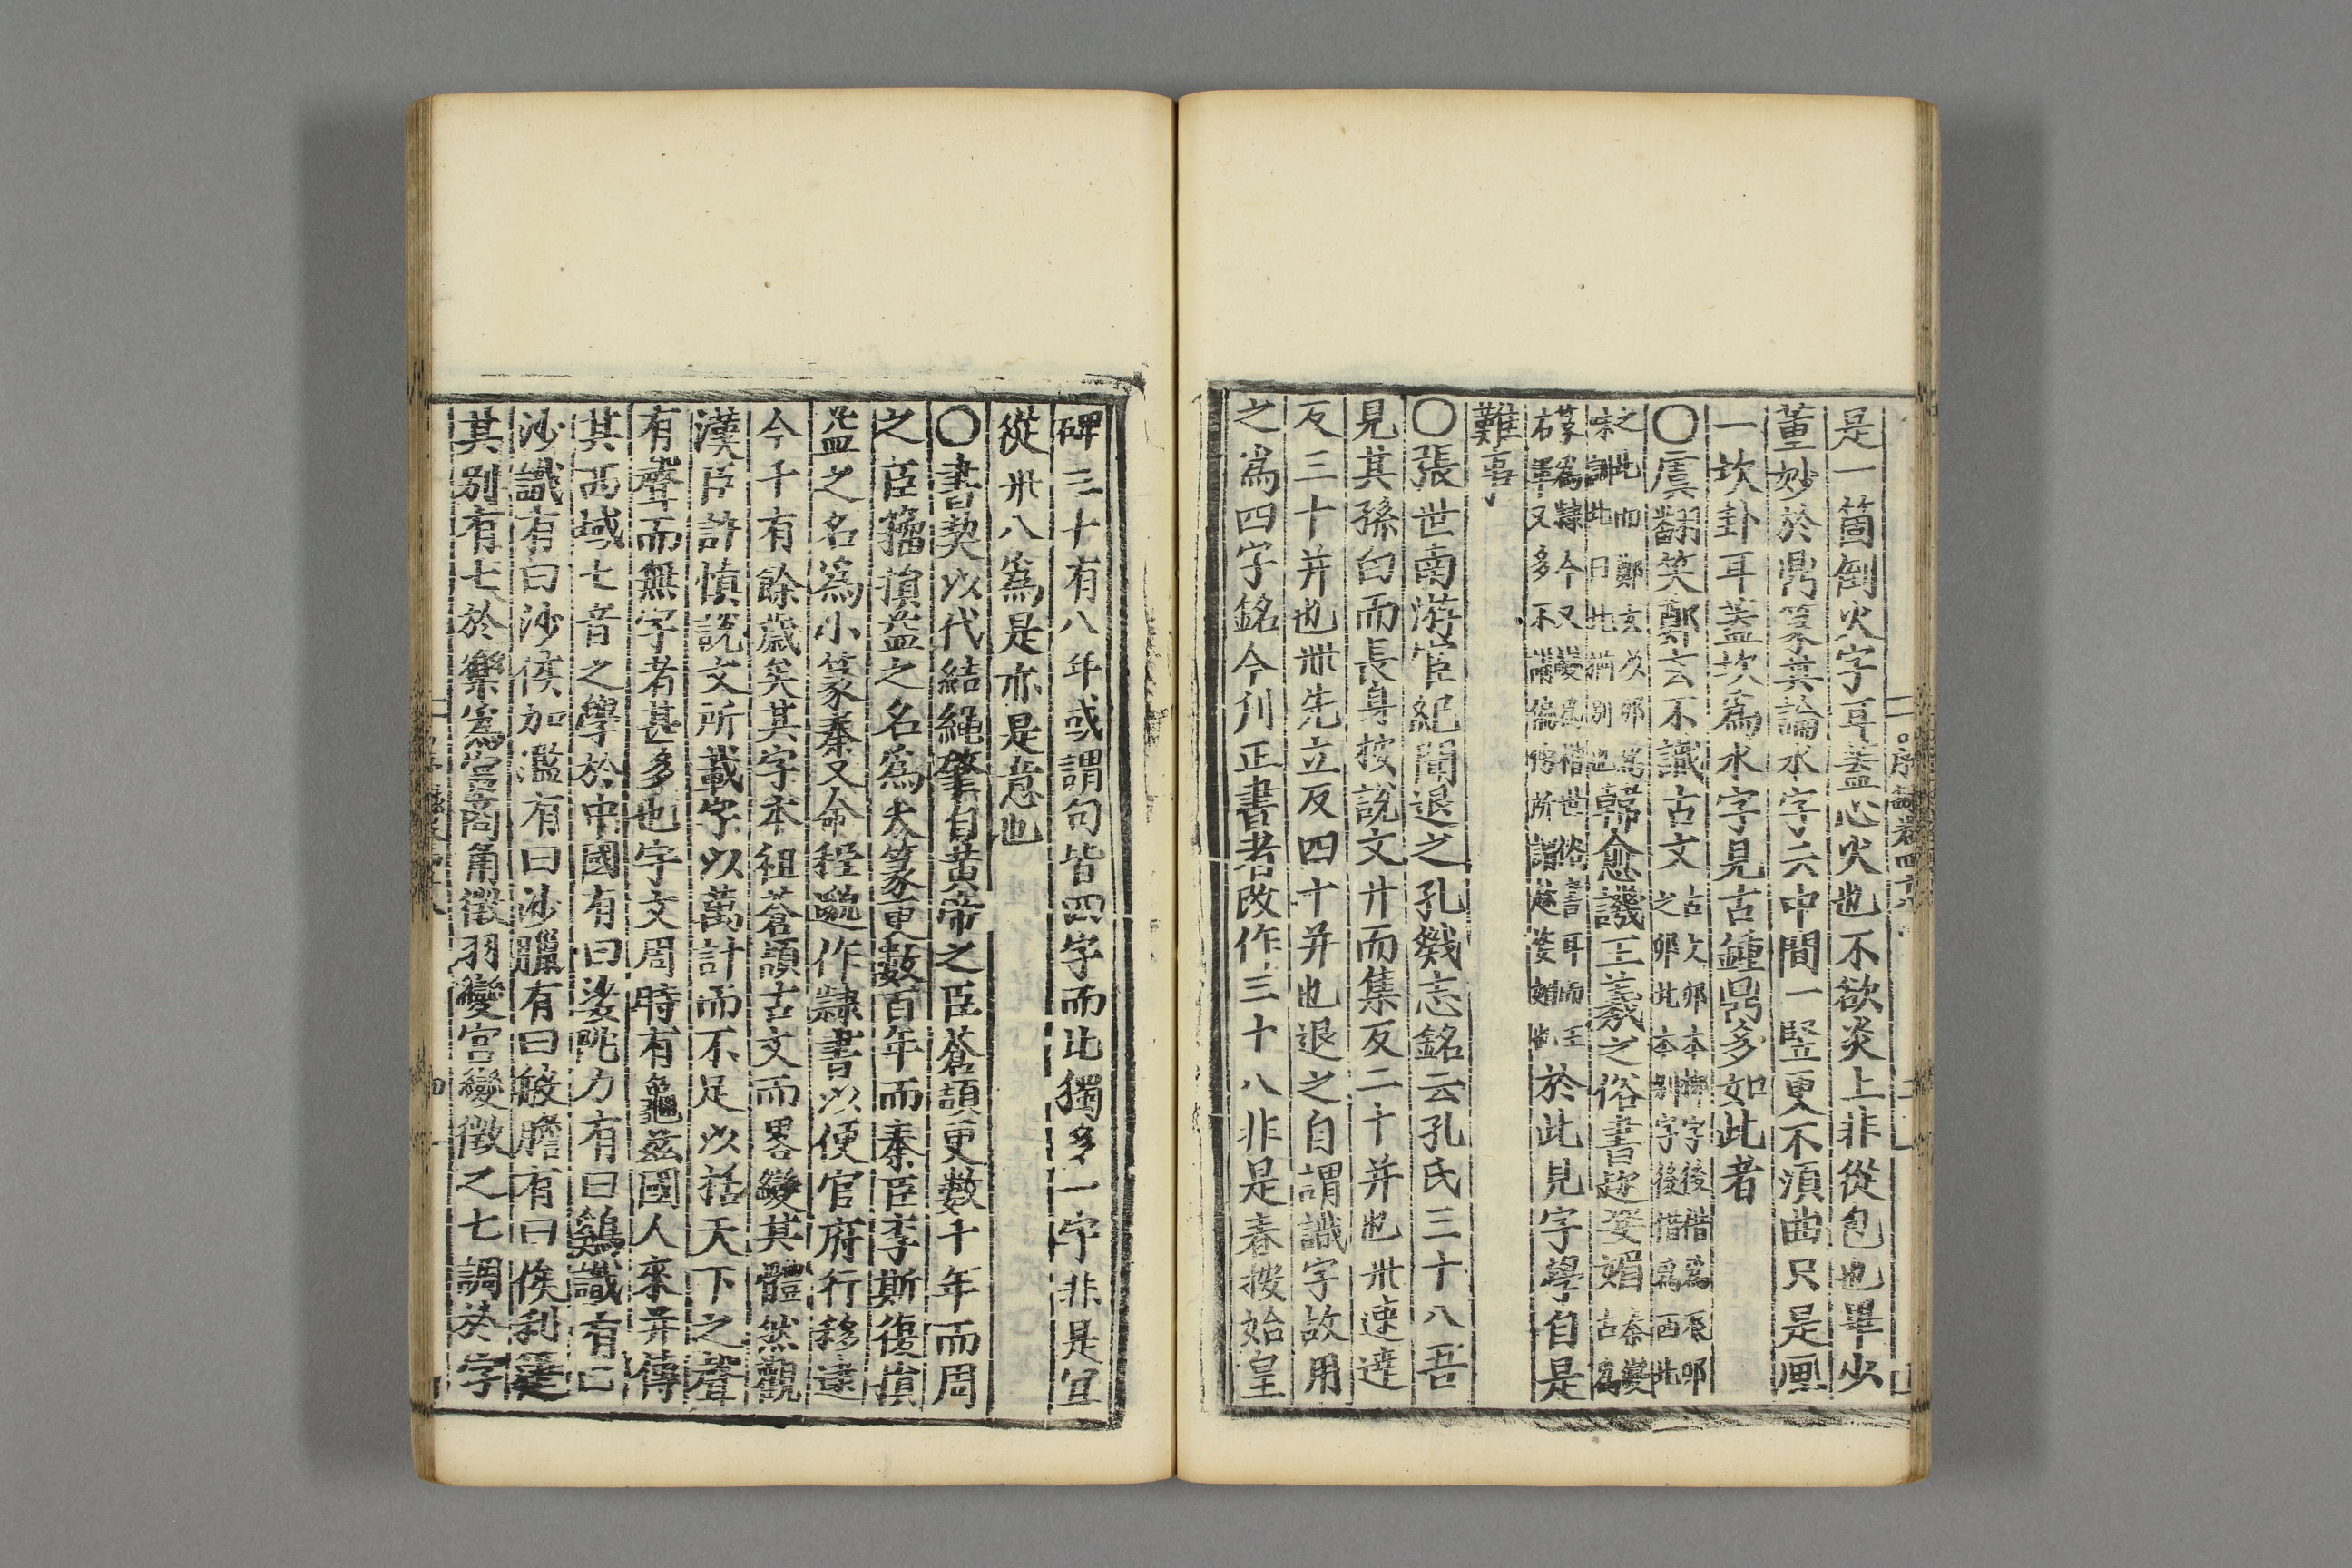 是一箇倒火字耳蓋心火也不欲炎上非從包也畢少
董妙於鼎篆其論水字云中間一竪更不湏曲只是畫
一坎卦耳蓋坎爲水字見古鍾鼎多如此者
〇虞翻笑鄭玄不識古文古文卯本柳字後借爲辰卯
之卯北本別字後借爲西北
之北而鄭玄以卯爲
昧訓北曰北猶別也韓愈譏王羲之俗書趂姿媚秦變
古爲
篆爲隷今又變爲楷世俗書耳而王
右軍又多不講偏傍所謂趂姿媚也於此見字學自是
難事
〇張世南游宦紀聞退之孔戣志銘云孔氏三十八吾
見其孫白而長身按說文廿而集反二十并也卅速達
反三十并也卌先立反四十并也退之自謂識字故用
之爲四字銘今刋正書者改作三十八非是春按始皇
碑三十有八年或謂句皆四字而此獨多一字非是宜
從卅八爲是亦是意也
〇書契以代結繩肇自黃帝之臣蒼頡更數千年而周
之臣籀損益之名爲大篆更數百年而秦臣李斯復損
益之名爲小篆秦又命程邈作隷書以便官府行移逮
今千有餘歲矣其字本祖蒼頡古文而畧變其體然觀
漢臣許愼說文所載字以萬計而不足以括天下之聲
有聲而無字者甚多也宇文周時有龜茲國人來并傳
其西域七音之學於中國有曰娑陁力有曰鷄識有曰
沙識有曰沙侯加濫有曰沙臘有曰般贍有曰侯利箑
其別有七於樂爲宮商角徵羽變宮變徵之七調於字